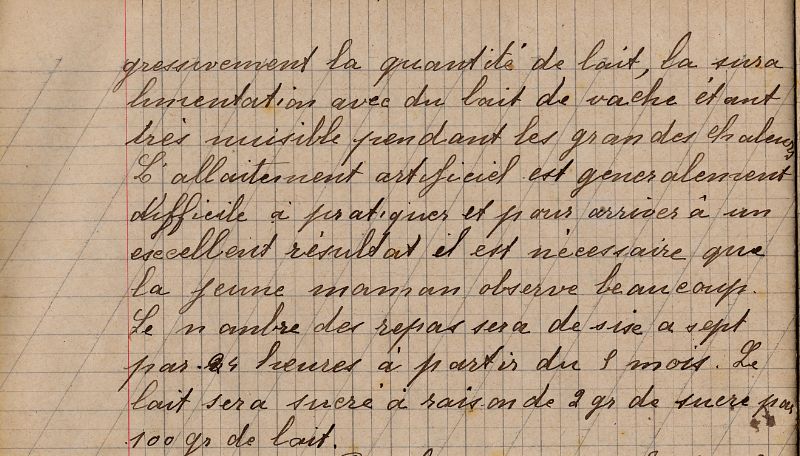 gressivement la quantité de lait, la sura
limentation avec du lait de vache étant
très nuisible pendant les grandes chaleurs
L'allaitement artificiel est generalement
difficile à pratiquer et pour arriver à un
excellent résultat il est nécessaire que
la jeune maman observe beaucoup.
Le nombre des repas sera de six a sept
par 24 heures à partir du mois. Le
lait sera sucré à raison de 2 gr de sucre par
100 gr de lait.